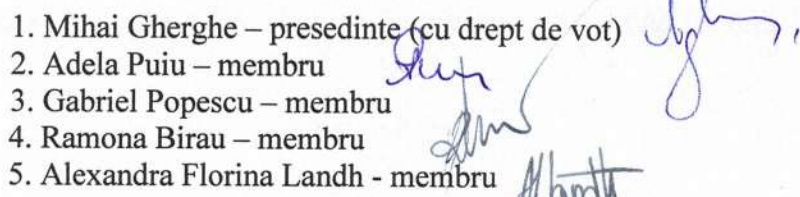 1. Mihai Gherghe – presedinte (cu drept de vot)
2. Adela Puiu – membru
3. Gabriel Popescu – membru
4. Ramona Birau – membru
5. Alexandra Florina Landh - membru